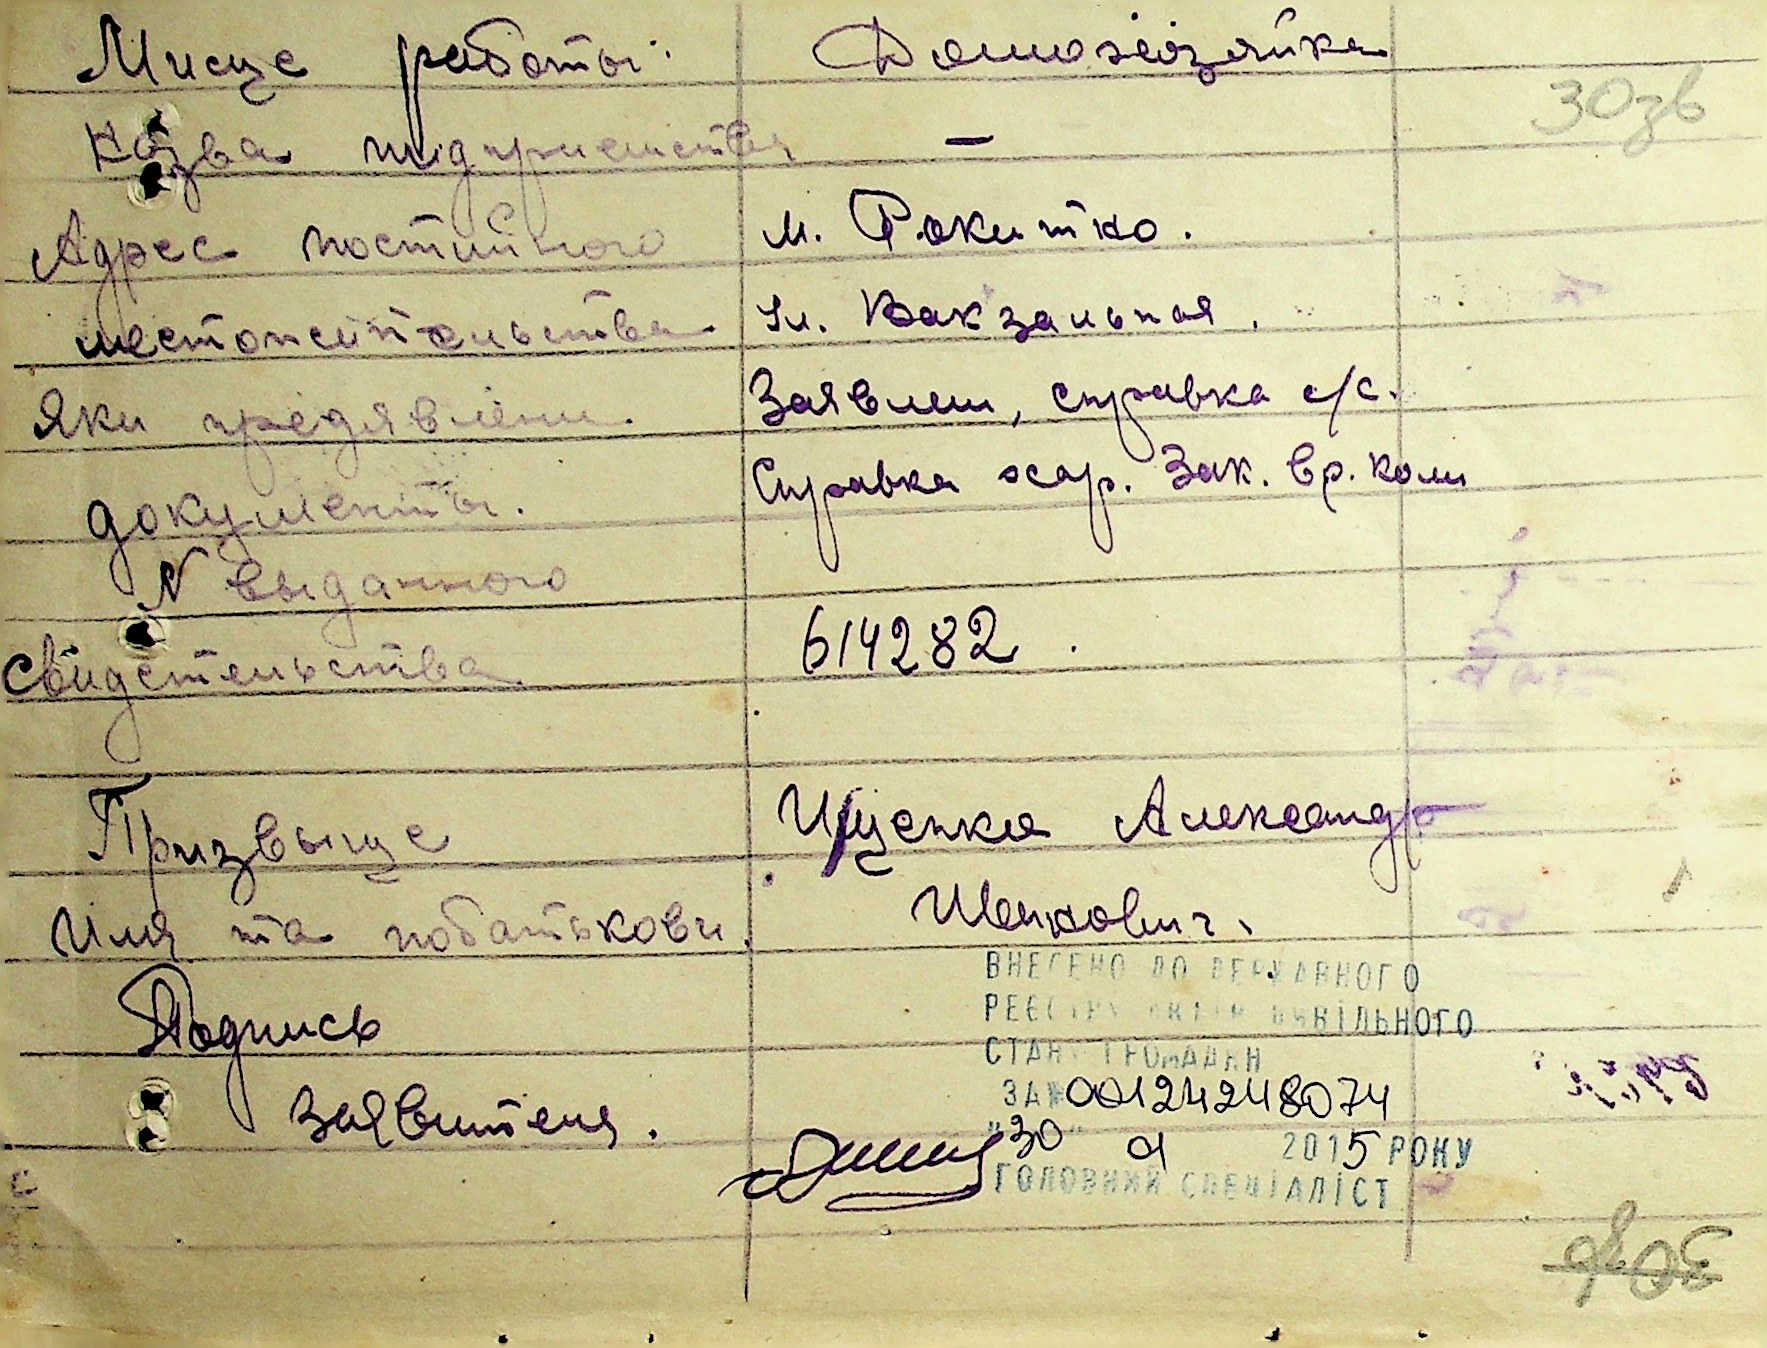 Мисце работы: Домохозяйка
30зв
Назва підприемства —
Адрес постийного м. Рокитно.
местожительства ул. Вакзальная.
Яки предявлени Заявлен, справка с/с.
документы. Справка жар. Зак. вр. Ком
N выданного
свидетельства 614282.
Призвыще Ищенко Александр
Имя та побатькови.
Подпись
заявителя.
ВНЕСЕНО ДО ДЕРЖАВНОГО
РЕЄСТРУ АКТІВ ЦИВІЛЬНОГО
СТАНУ ГРОМАДЯН
ЗА № 00124248074
"30" 2015 РОКУ
ГОЛОВНИЙ СПЕЦІАЛІСТ